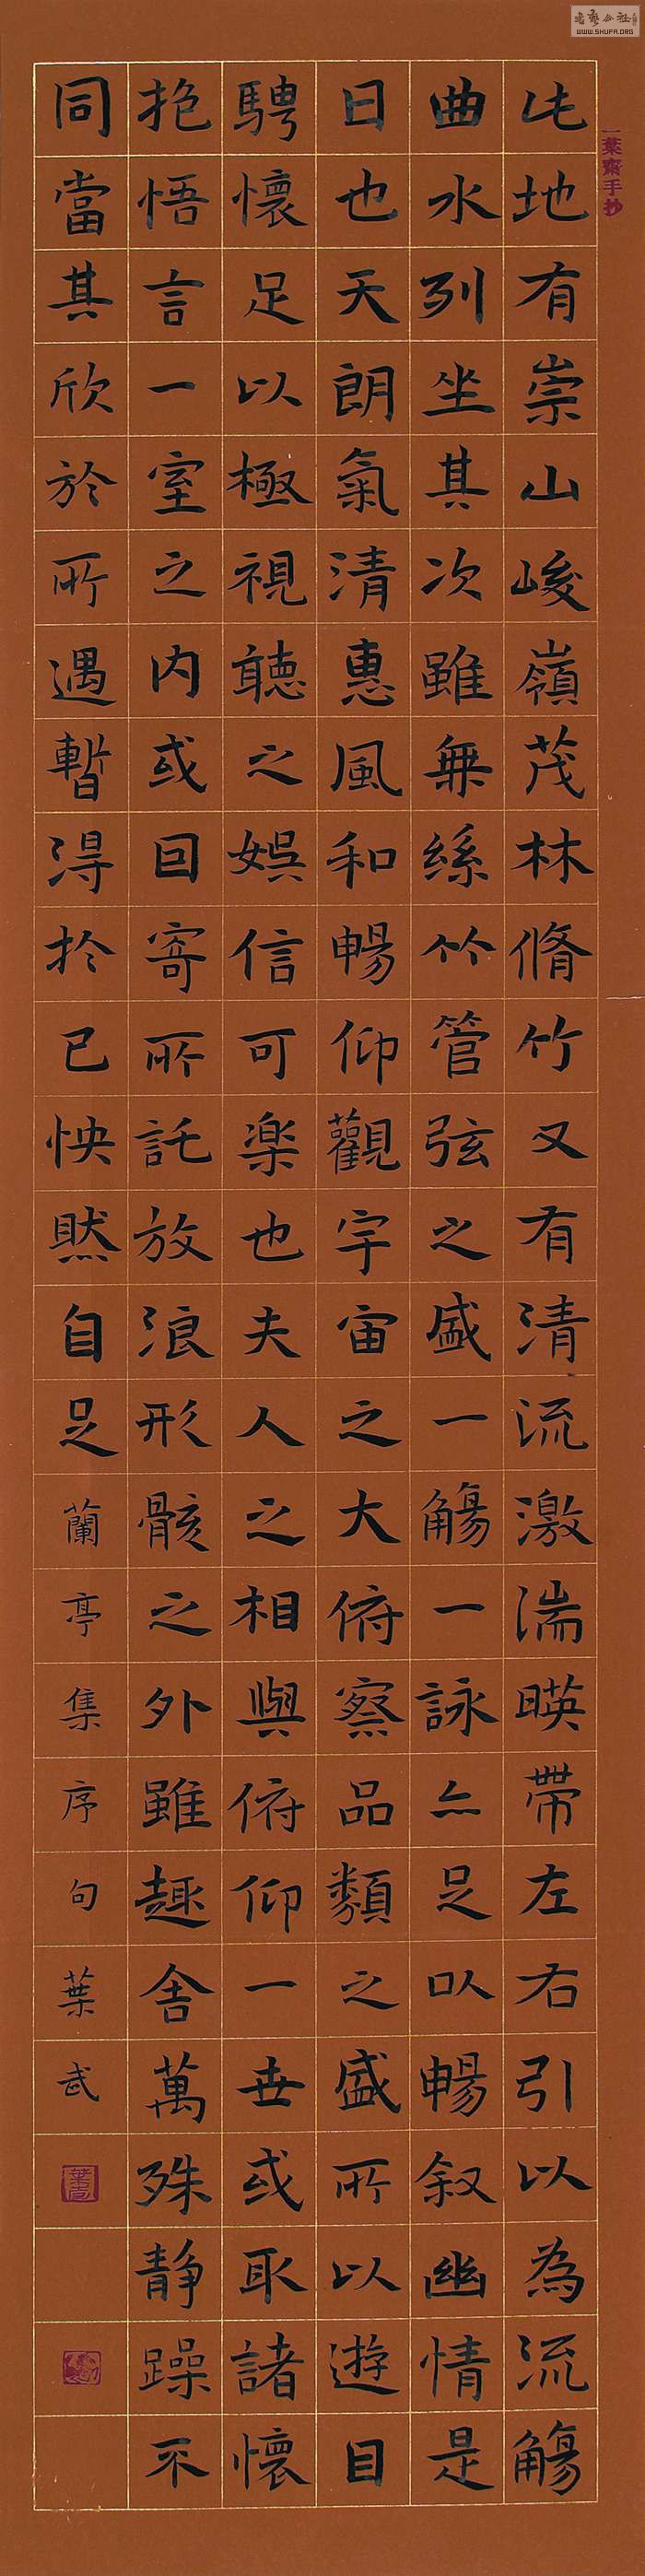 一葉齋手抄
此地有崇山峻嶺茂林脩竹又有清流激湍暎帶左右引以為流觴
曲水列坐其次雖無絲竹管弦之盛一觴一詠亦足以暢叙幽情是
日也天朗氣清惠風和暢仰觀宇宙之大俯察品類之盛所以遊目
騁懷足以極視聽之娛信可楽也夫人之相與俯仰一世或取諸懷
抱悟言一室之内或因寄所託放浪形骸之外雖趣舍萬殊静躁不
同當其欣於所遇暫得於己怏然自足蘭亭集序句葉武
WWW.SHUFA.ORG